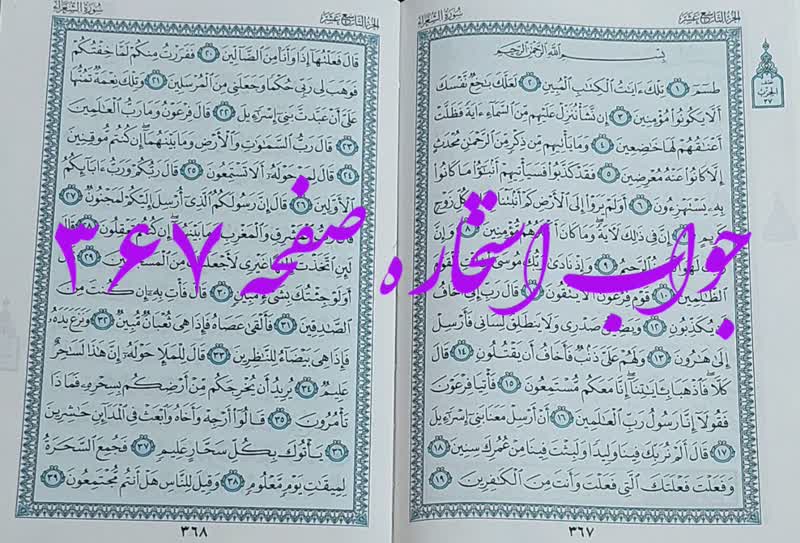 سُورَةُ الشُّعَرَاءِ
الجُزْءُ التَّاسِعَ عَشَرَ
بِسْمِ ٱللَّهِ ٱلرَّحْمَٰنِ ٱلرَّحِيمِ
طسٓمٓ ١ تِلْكَ ءَايَٰتُ ٱلْكِتَٰبِ ٱلْمُبِينِ ٢ لَعَلَّكَ بَٰخِعٌ نَّفْسَكَ
أَلَّا يَكُونُوا۟ مُؤْمِنِينَ ٣ إِن نَّشَأْ نُنَزِّلْ عَلَيْهِم مِّنَ ٱلسَّمَآءِ ءَايَةً فَظَلَّتْ
أَعْنَٰقُهُمْ لَهَا خَٰضِعِينَ ٤ وَمَا يَأْتِيهِم مِّن ذِكْرٍ مِّنَ ٱلرَّحْمَٰنِ مُحْدَثٍ
إِلَّا كَانُوا۟ عَنْهُ مُعْرِضِينَ ٥ فَقَدْ كَذَّبُوا۟ فَسَيَأْتِيهِمْ أَنۢبَٰٓؤُا۟ مَا كَانُوا۟
بِهِۦ يَسْتَهْزِءُونَ ٦ أَوَلَمْ يَرَوْا۟ إِلَى ٱلْأَرْضِ كَمْ أَنۢبَتْنَا فِيهَا مِن كُلِّ زَوْجٍ
كَرِيمٍ ٧ إِنَّ فِى ذَٰلِكَ لَءَايَةً وَمَا كَانَ أَكْثَرُهُم مُّؤْمِنِينَ ٨ وَإِنَّ
رَبَّكَ لَهُوَ ٱلْعَزِيزُ ٱلرَّحِيمُ ٩ وَإِذْ نَادَىٰ رَبُّكَ مُوسَىٰٓ أَنِ ٱئْتِ ٱلْقَوْمَ
ٱلظَّٰلِمِينَ ١٠ قَوْمَ فِرْعَوْنَ أَلَا يَتَّقُونَ ١١ قَالَ رَبِّ إِنِّىٓ أَخَافُ
أَن يُكَذِّبُونِ ١٢ وَيَضِيقُ صَدْرِى وَلَا يَنطَلِقُ لِسَانِى فَأَرْسِلْ
إِلَىٰ هَٰرُونَ ١٣ وَلَهُمْ عَلَىَّ ذَنۢبٌ فَأَخَافُ أَن يَقْتُلُونِ ١٤ قَالَ
كَلَّا فَٱذْهَبَا بِـَٔايَٰتِنَآ إِنَّا مَعَكُم مُّسْتَمِعُونَ ١٥ فَأْتِيَا فِرْعَوْنَ
فَقُولَآ إِنَّا رَسُولُ رَبِّ ٱلْعَٰلَمِينَ ١٦ أَنْ أَرْسِلْ مَعَنَا بَنِىٓ إِسْرَٰٓءِيلَ
١٧ قَالَ أَلَمْ نُرَبِّكَ فِينَا وَلِيدًا وَلَبِثْتَ فِينَا مِنْ عُمُرِكَ سِنِينَ ١٨
وَفَعَلْتَ فَعْلَتَكَ ٱلَّتِى فَعَلْتَ وَأَنتَ مِنَ ٱلْكَٰفِرِينَ ١٩
٣٦٧
الحزب
٣٧
الجُزْءُ التَّاسِعَ عَشَرَ
سُورَةُ الشُّعَرَاءِ
قَالَ فَعَلْتُهَآ إِذًا وَأَنَا۠ مِنَ ٱلضَّآلِّينَ ٢٠ فَفَرَرْتُ مِنكُمْ لَمَّا خِفْتُكُمْ
فَوَهَبَ لِى رَبِّى حُكْمًا وَجَعَلَنِى مِنَ ٱلْمُرْسَلِينَ ٢١ وَتِلْكَ نِعْمَةٌ تَمُنُّهَا
عَلَىَّ أَنْ عَبَّدتَّ بَنِىٓ إِسْرَٰٓءِيلَ ٢٢ قَالَ فِرْعَوْنُ وَمَا رَبُّ ٱلْعَٰلَمِينَ
٢٣ قَالَ رَبُّ ٱلسَّمَٰوَٰتِ وَٱلْأَرْضِ وَمَا بَيْنَهُمَآ إِن كُنتُم مُّوقِنِينَ
٢٤ قَالَ لِمَنْ حَوْلَهُۥٓ أَلَا تَسْتَمِعُونَ ٢٥ قَالَ رَبُّكُمْ وَرَبُّ ءَابَآئِكُمُ
ٱلْأَوَّلِينَ ٢٦ قَالَ إِنَّ رَسُولَكُمُ ٱلَّذِىٓ أُرْسِلَ إِلَيْكُمْ لَمَجْنُونٌ ٢٧
قَالَ رَبُّ ٱلْمَشْرِقِ وَٱلْمَغْرِبِ وَمَا بَيْنَهُمَآ إِن كُنتُمْ تَعْقِلُونَ ٢٨ قَالَ
لَئِنِ ٱتَّخَذْتَ إِلَٰهًا غَيْرِى لَأَجْعَلَنَّكَ مِنَ ٱلْمَسْجُونِينَ ٢٩ قَالَ
أَوَلَوْ جِئْتُكَ بِشَىْءٍ مُّبِينٍ ٣٠ قَالَ فَأْتِ بِهِۦٓ إِن كُنتَ مِنَ
ٱلصَّٰدِقِينَ ٣١ فَأَلْقَىٰ عَصَاهُ فَإِذَا هِىَ ثُعْبَانٌ مُّبِينٌ ٣٢ وَنَزَعَ يَدَهُۥ
فَإِذَا هِىَ بَيْضَآءُ لِلنَّٰظِرِينَ ٣٣ قَالَ لِلْمَلَإِ حَوْلَهُۥٓ إِنَّ هَٰذَا لَسَٰحِرٌ
عَلِيمٌ ٣٤ يُرِيدُ أَن يُخْرِجَكُم مِّنْ أَرْضِكُم بِسِحْرِهِۦ فَمَاذَا
تَأْمُرُونَ ٣٥ قَالُوٓا۟ أَرْجِهْ وَأَخَاهُ وَٱبْعَثْ فِى ٱلْمَدَآئِنِ حَٰشِرِينَ
٣٦ يَأْتُوكَ بِكُلِّ سَحَّارٍ عَلِيمٍ ٣٧ فَجُمِعَ ٱلسَّحَرَةُ
لِمِيقَٰتِ يَوْمٍ مَّعْلُومٍ ٣٨ وَقِيلَ لِلنَّاسِ هَلْ أَنتُم مُّجْتَمِعُونَ ٣٩
٣٦٨
جواب استخاره صفحه ۳۶۷